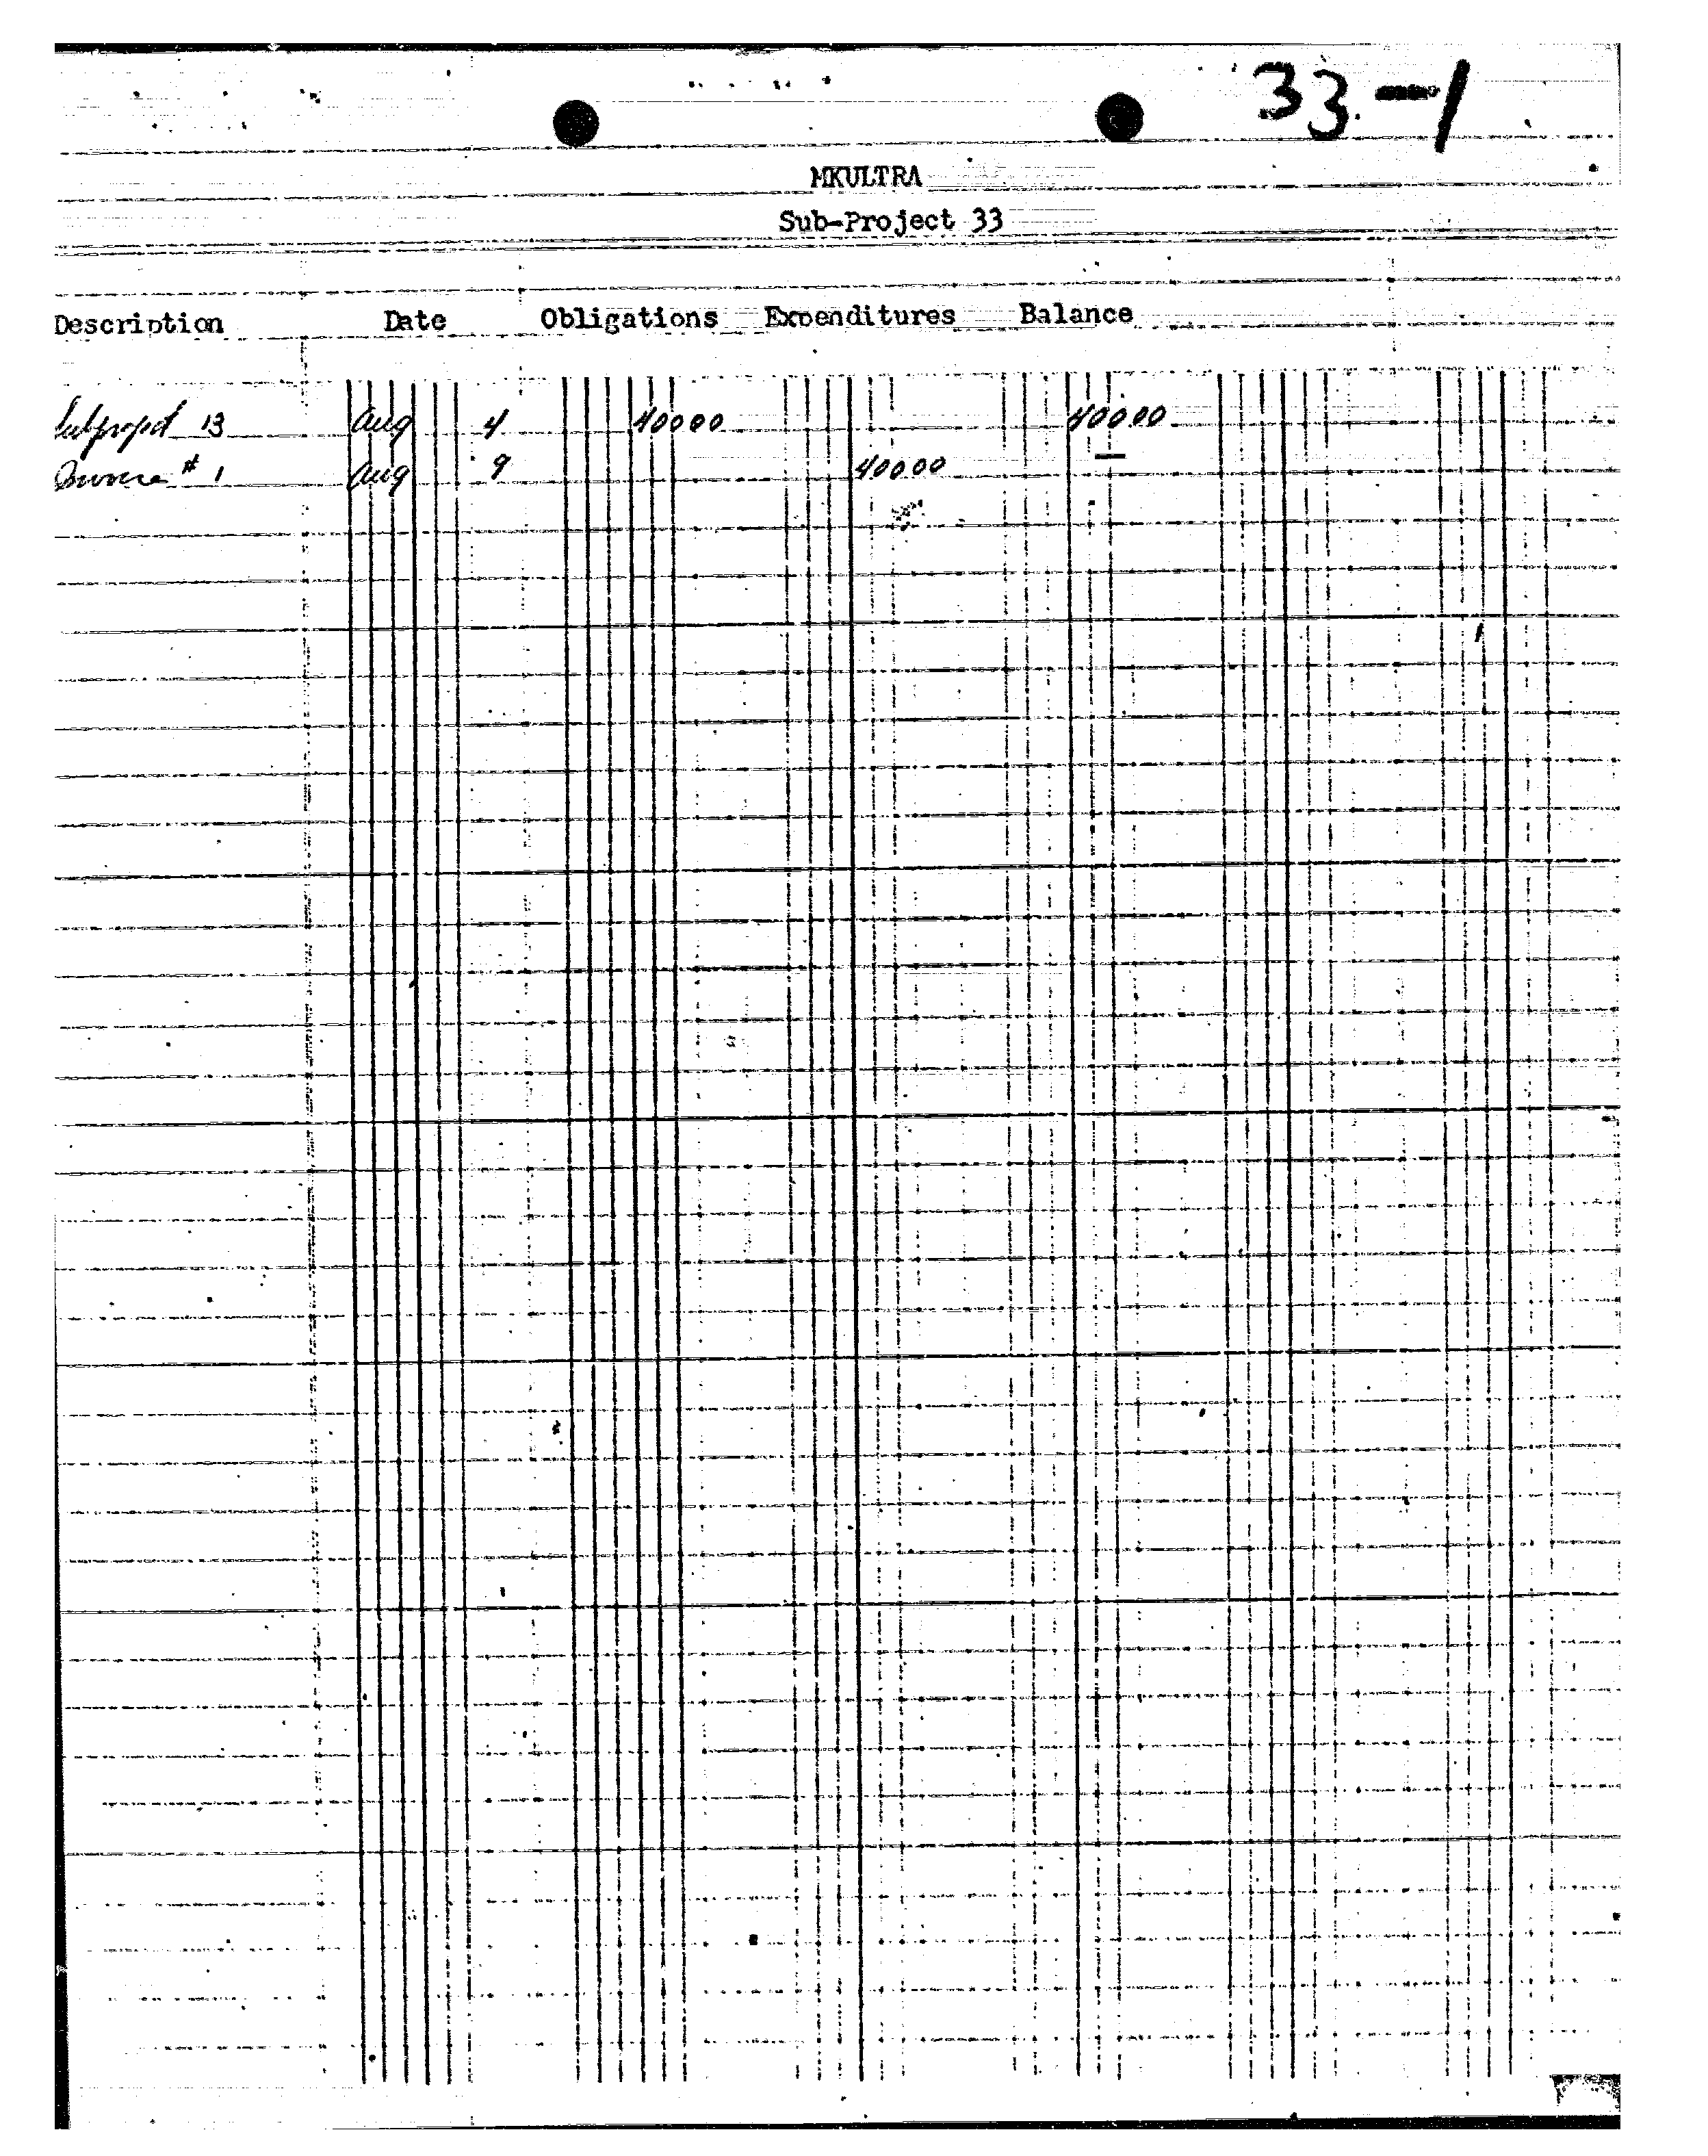 33-1
MKULTRA
Sub-Project 33
Description Date Obligations Expenditures Balance
Subproject 13 Aug 4 400 00 400 00
Invoice # 1 Aug 9 400 00 —